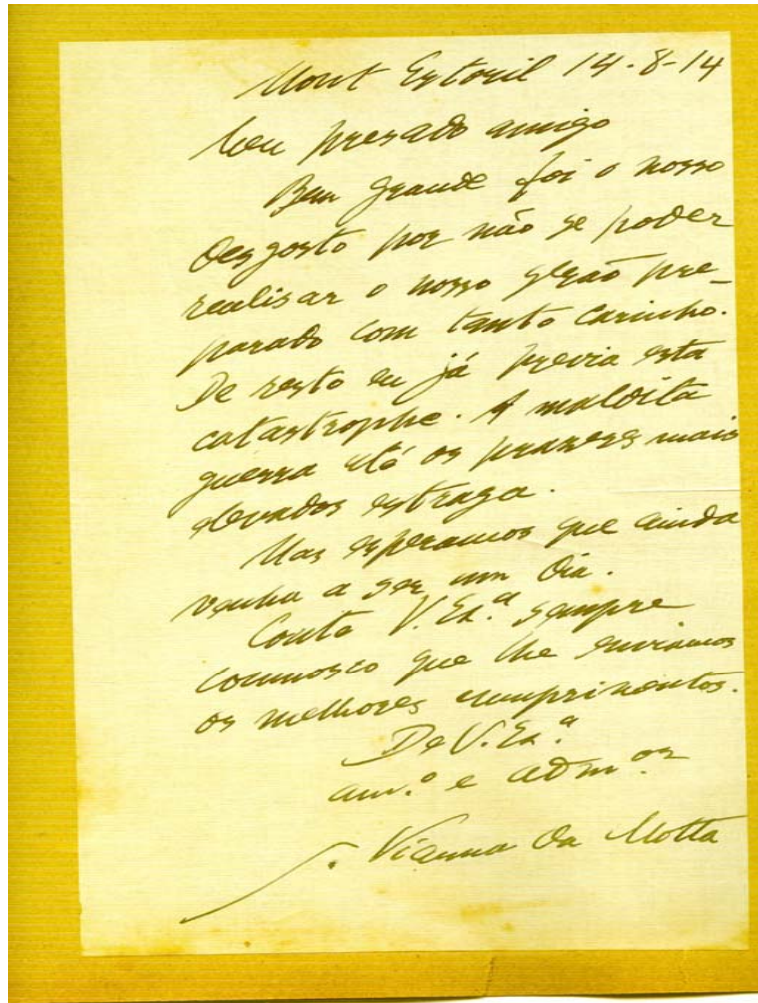 Mont Estoril 14-8-14
Meu presado amigo
Bem grande foi o nosso
desgosto por não se poder
realisar o nosso serão pre-
parado com tanto carinho.
De resto eu já previa esta
catastrophe. A maldita
guerra até os prazeres mais
elevados estraga.
Mas esperamos que ainda
venha a ser um dia.
Conte V. Ex.ª sempre
comnosco que lhe enviamos
os melhores cumprimentos.
De V. Ex.ª
am.º e adm.or
J. Vianna da Motta